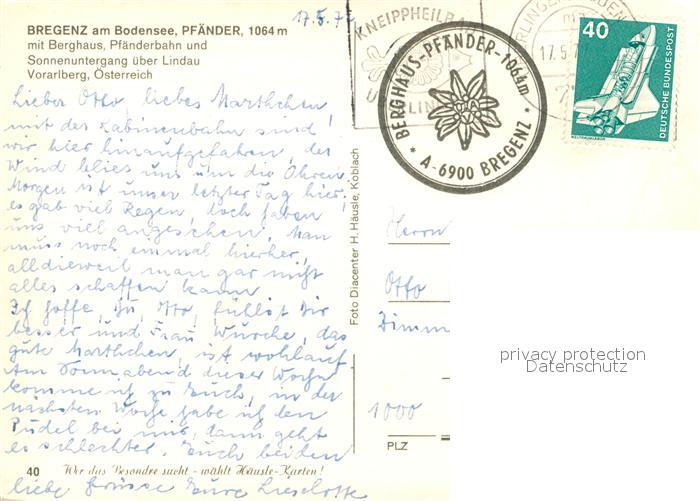 BREGENZ am Bodensee, PFÄNDER, 1064 m
mit Berghaus, Pfänderbahn und
Sonnenuntergang über Lindau
Vorarlberg, Österreich
17.5.7
Lieber Otto, liebes Marthchen!
mit der Kabinenbahn sind
wir hier hinaufgefahren, der
Wind blies uns um die Ohren.
Morgen ist unser letzter Tag hier,
es gab viel Regen, doch haben
uns viel angesehen. Man
muss noch einmal hierher,
alldieweil man gar nicht
alles schaffen kann.
Ich hoffe, Du, Otto, fühlst Dir
besser und Frau Wurche, das
gute Marthchen, ist wohlauf.
Am Sonnabend dieser Woche
komme ich zu Euch, in der
nächsten Woche habe ich den
Pudel bei mir, dann geht
es schlechter. Euch beiden
liebe Grüsse Eure Lieselotte
40 Wer das Besondre sucht - wählt Häusle-Karten!
Foto Diacenter H. Häusle, Koblach
KNEIPPHEILBA
Ü LIN
17.5.7
BERGHAUS-PFÄNDER-1064m
* A-6900 BREGENZ *
40
DEUTSCHE BUNDESPOST
WELTRAUMLABOR
Herrn
Otto
Zimm
1000
PLZ
privacy protection
Datenschutz